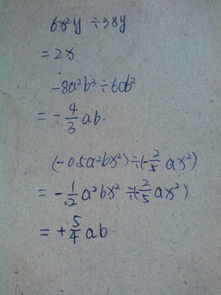 6x²y ÷ 3xy
= 2x
-8a²b³ ÷ 6ab²
= -4/3 ab.
(-0.5a²bx²) ÷ (-2/5 ax²)
= -1/2 a²bx² ÷ (-2/5 ax²)
= +5/4 ab.